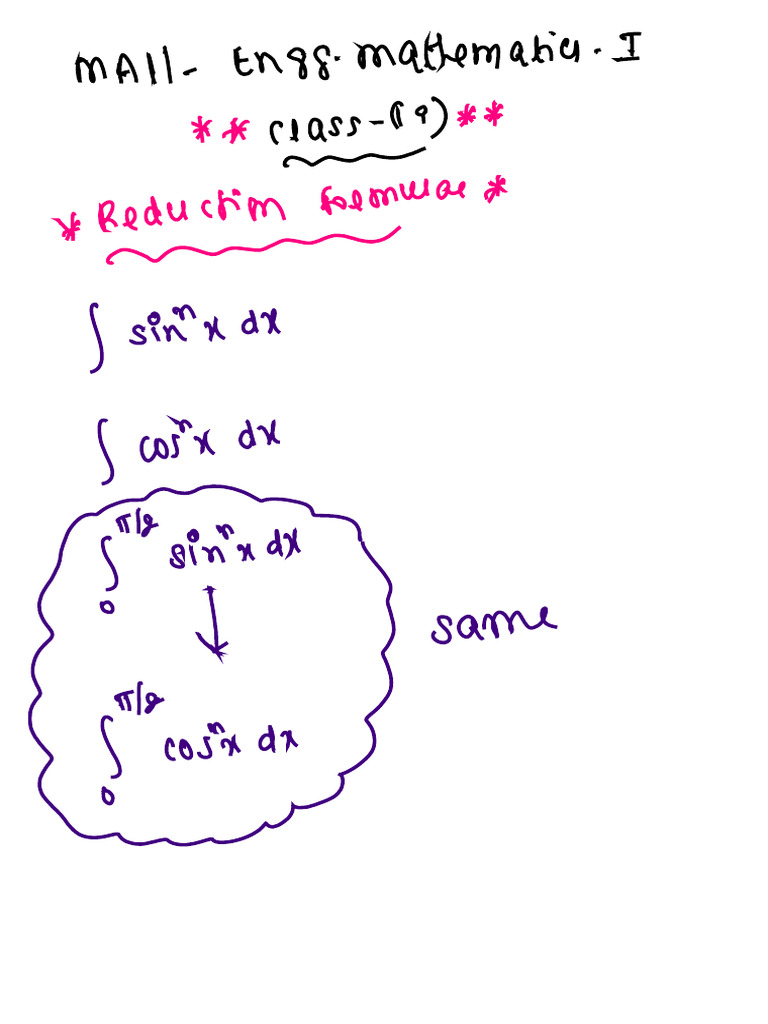 MA11- Engg. mathematics - I
** class-(19) **
* Reduction formulae *
∫ sinⁿx dx
∫ cosⁿx dx
∫₀^π/2 sinⁿx dx
same
∫₀^π/2 cosⁿx dx